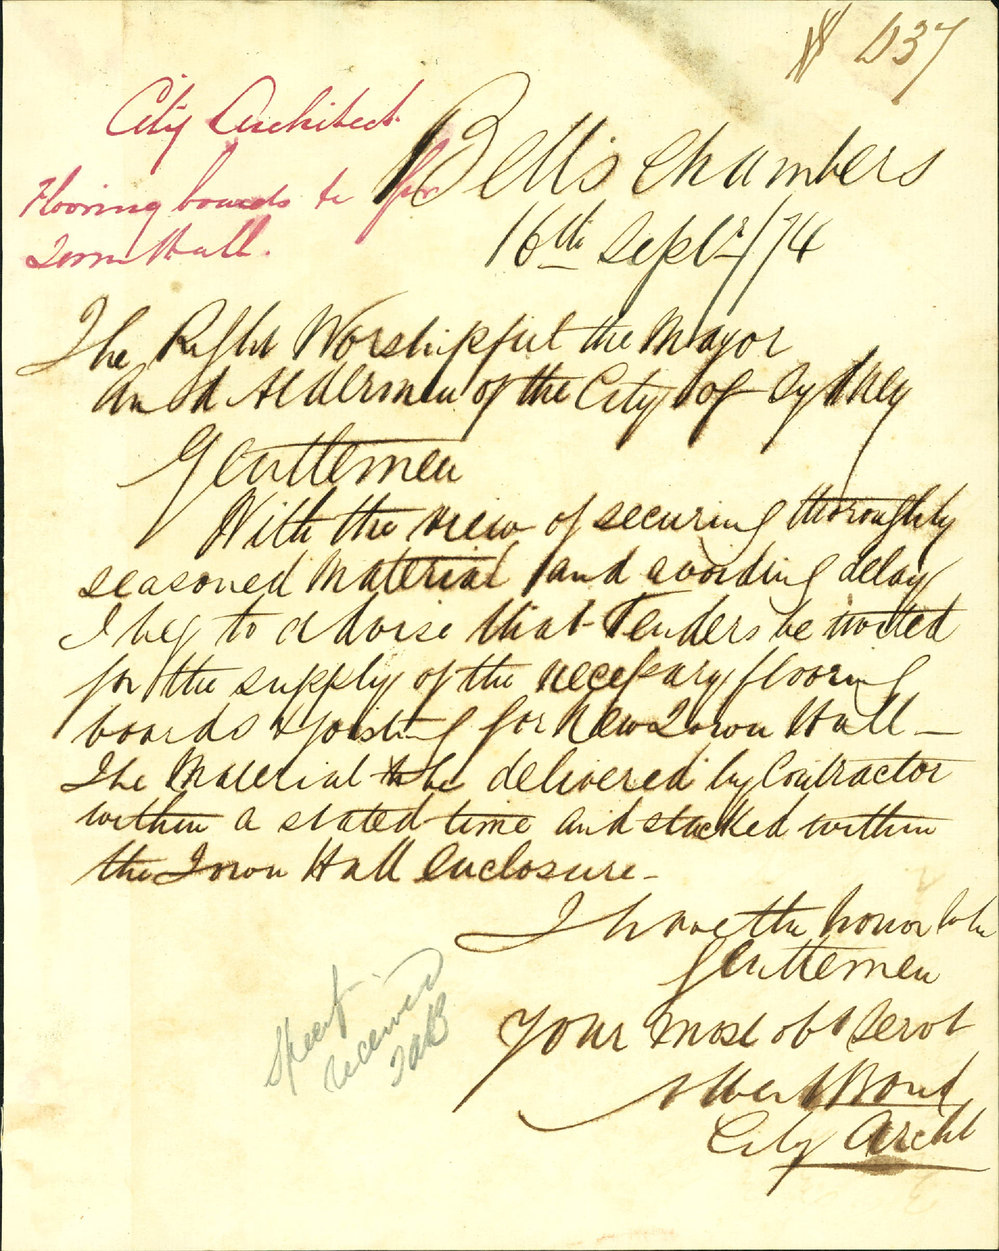 437
City Architect
Flooring boards &c for
Town Hall.
Bell's Chambers
16th Septr/74
The Right Worshipful the Mayor
And Aldermen of the City of Sydney
Gentlemen
With the view of securing thoroughly
seasoned Material and avoiding delay
I beg to advise that Tenders be invited
for the supply of the necessary flooring
boards & joisting for New Town Hall –
The Material to be delivered by Contractor
within a stated time and stacked within
the Town Hall enclosure –
I have the honor to be
Gentlemen
Your most obt Servt
Albert Bond
City Archt
Specft
received